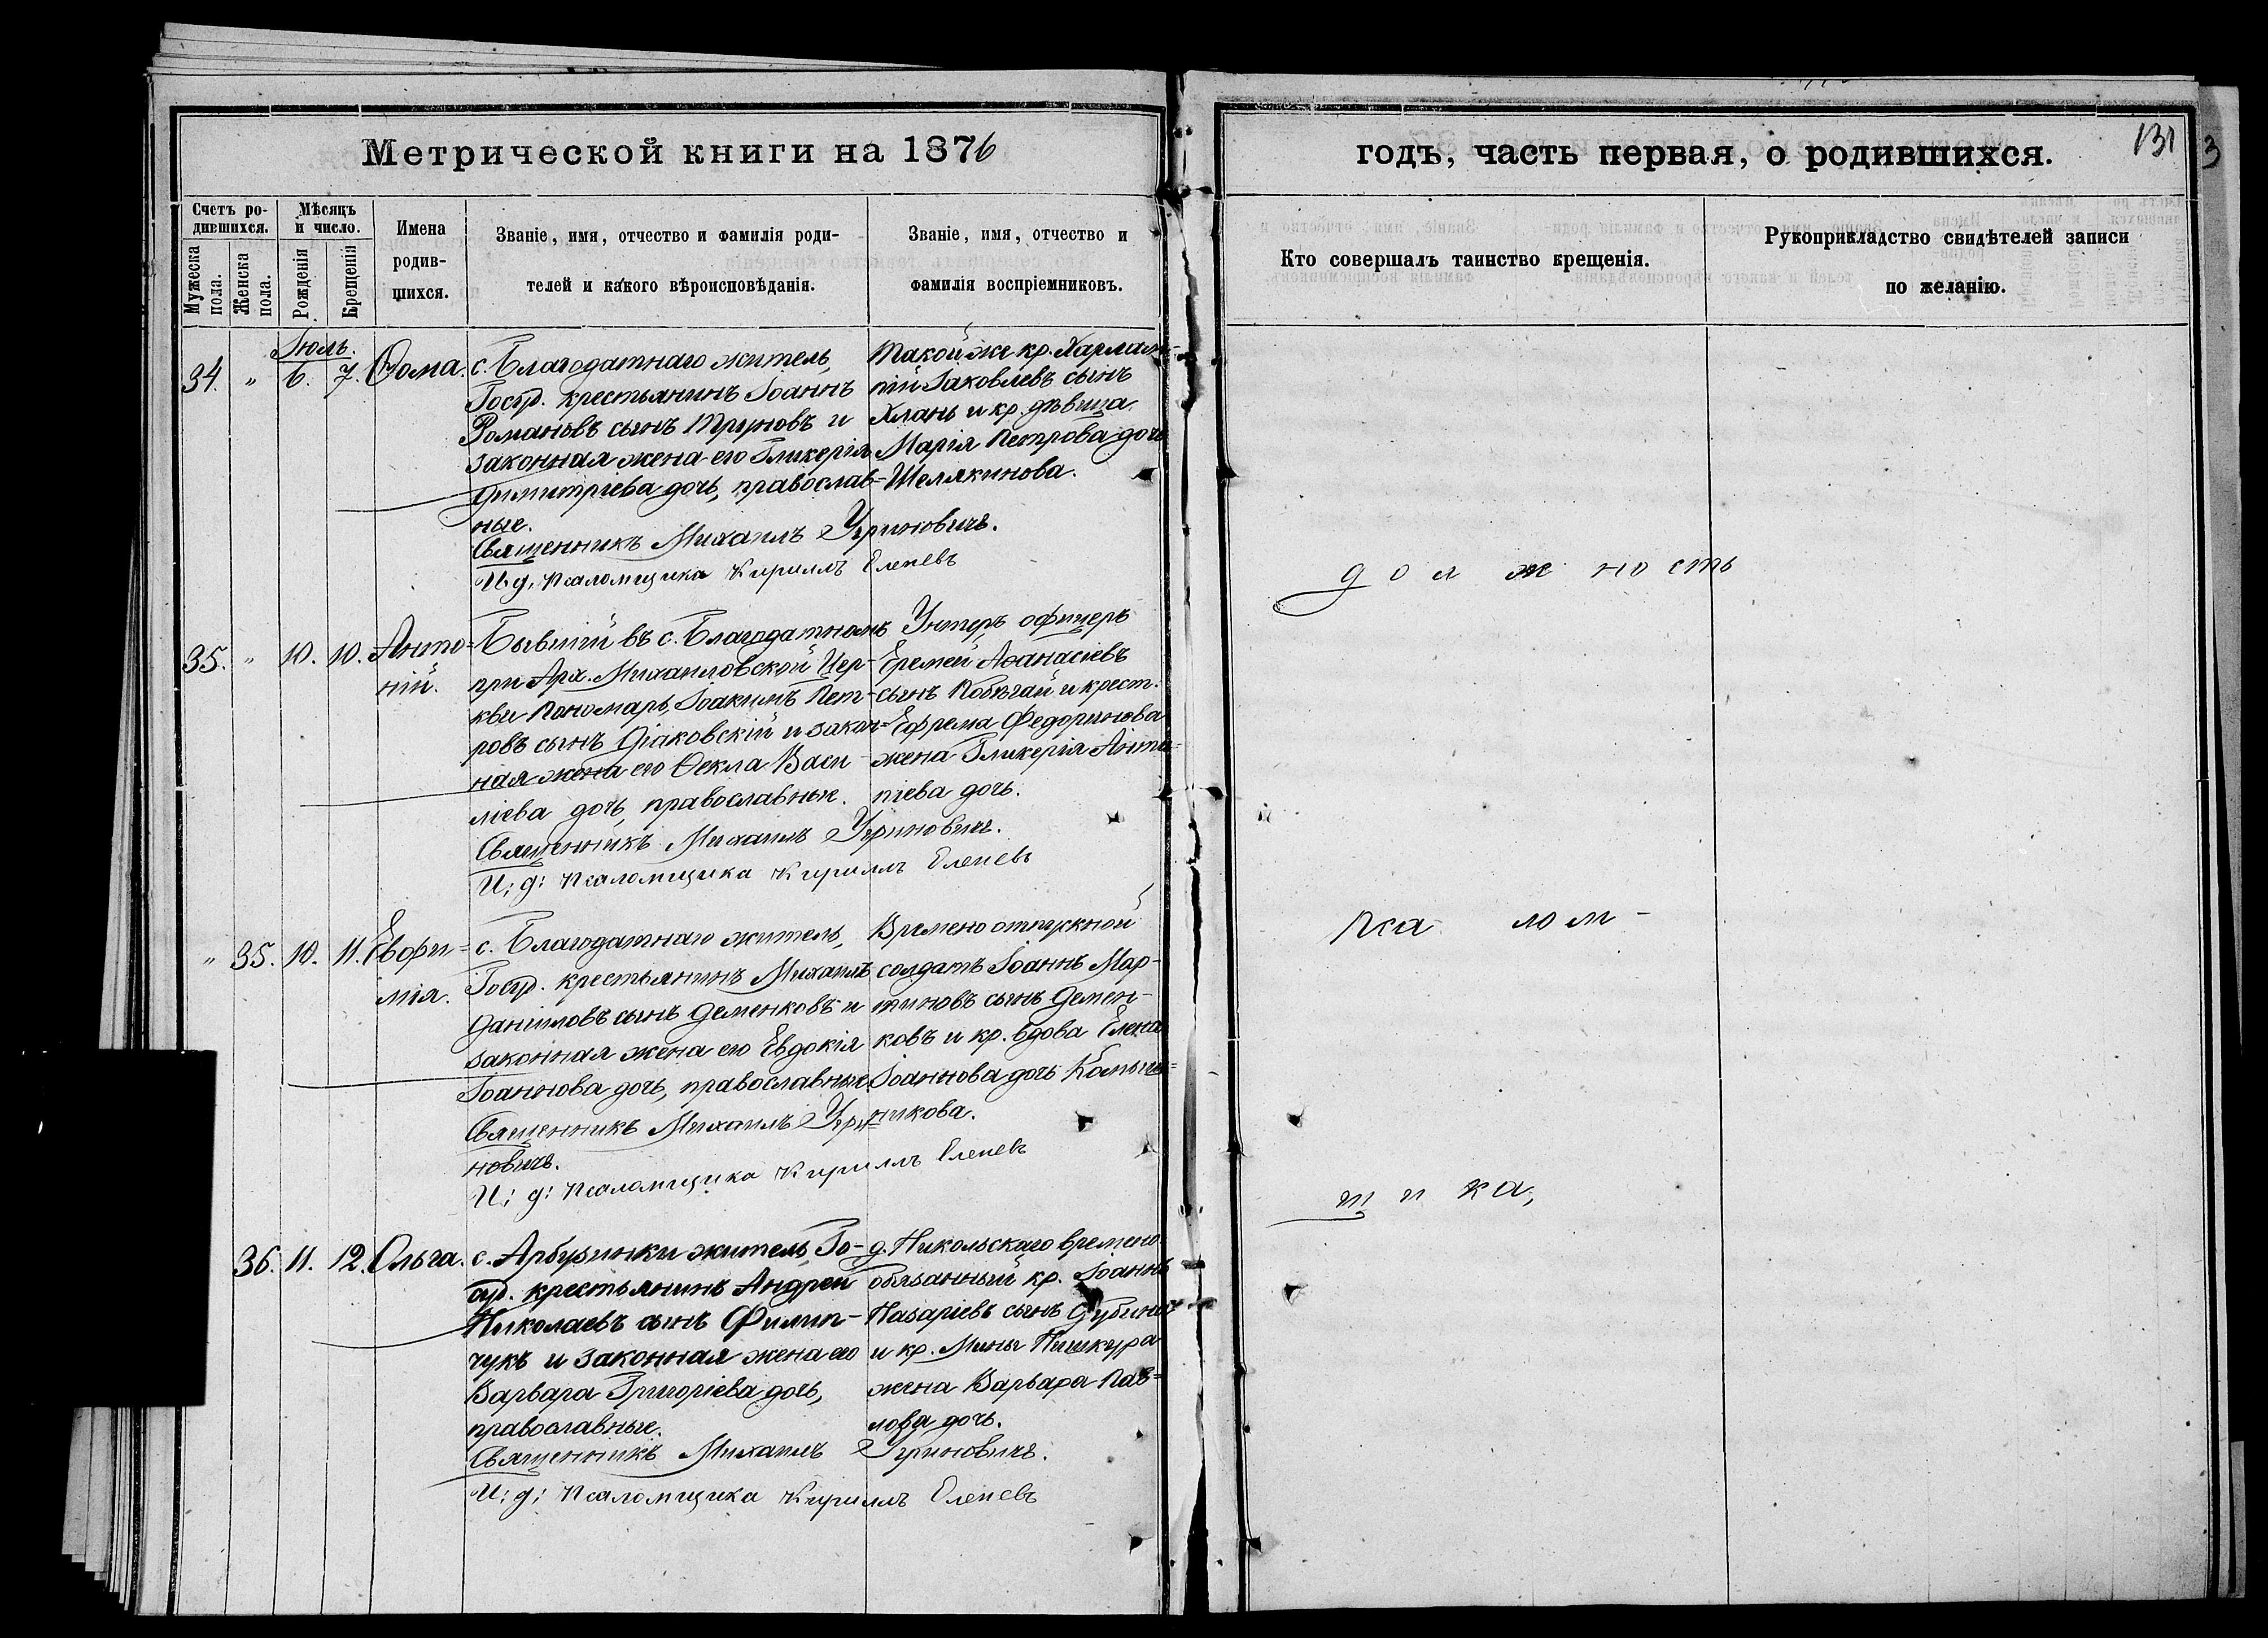 Метрической книги на 1876
годъ, часть первая, о родившихся.
131
3
Счетъ ро-
дившихся.
Мужеска пола.
Женска пола.
Мѣсяцъ
и число.
Рожденія
Крещенія
Имена
родив-
шихся.
Званіе, имя, отчество и фамилія роди-
телей и какого вѣроисповѣданія.
Званіе, имя, отчество и
фамилія воспріемниковъ.
Кто совершалъ таинство крещенія.
Рукоприкладство свидѣтелей записи
по желанію.
Іюль.
34. " 6. 7. Ѳома.
с. Благодатнаго житель,
Госуд. крестьянинъ Іоаннъ
Романовъ сынъ Труновъ и
законная жена его Гликерія
Димитріева дочь, православ-
ные.
Такой же кр. Харлам-
пій Іаковлевъ сынъ
Хлань и кр. дѣвица
Марія Петрова дочь
Шелякинова.
Священникъ Михаилъ Угриновичъ.
И. д. Псаломщика Кириллъ Елепевъ
35. " 10. 10. Анто-
ній.
Бывшій въ с. Благодатномъ
при Арх. Михаиловской Цер-
кви Пономарь, Іоакимъ Пет-
ровъ сынъ Діаковскій и закон-
ная жена его Ѳекла Васи-
ліева дочь, православные.
Унтеръ офицеръ
Еремей Аѳанасіевъ
сынъ Побѣгай и крест.
Ефрема Федоринова
жена Гликерія Анти-
піева дочь.
Священникъ Михаилъ Угриновичъ.
И: д: Псаломщика Кириллъ Елепевъ
" 35. 10. 11. Евфи-
мія.
с. Благодатнаго житель,
Госуд. крестьянинъ Михаилъ
Даніиловъ сынъ Деменковъ и
законная жена его Евдокія
Іоаннова дочь, православные.
Времено отпускной
солдатъ Іоаннъ Мар-
тиновъ сынъ Демен-
ковъ и кр. вдова Елена
Іоаннова дочь
никова.
Священникъ Михаилъ Угри-
новичъ.
И: д: Псаломщика Кириллъ Елепевъ
36. 11. 12. Ольга.
с. Арбузинки житель Го-
суд. крестьянинъ Андрей
Николаевъ сынъ Филип-
чукъ и законная жена его
Варвара Григоріева дочь,
православные.
д. Никольскаго времено
обязанный кр. Іоаннъ
Назаріевъ сынъ
и кр. Мины Пишкура
жена Варвара Пав-
лова дочь.
Священникъ Михаилъ Угриновичъ.
И: д: Псаломщика Кириллъ Елепевъ
должность
Пса лом-
щика,